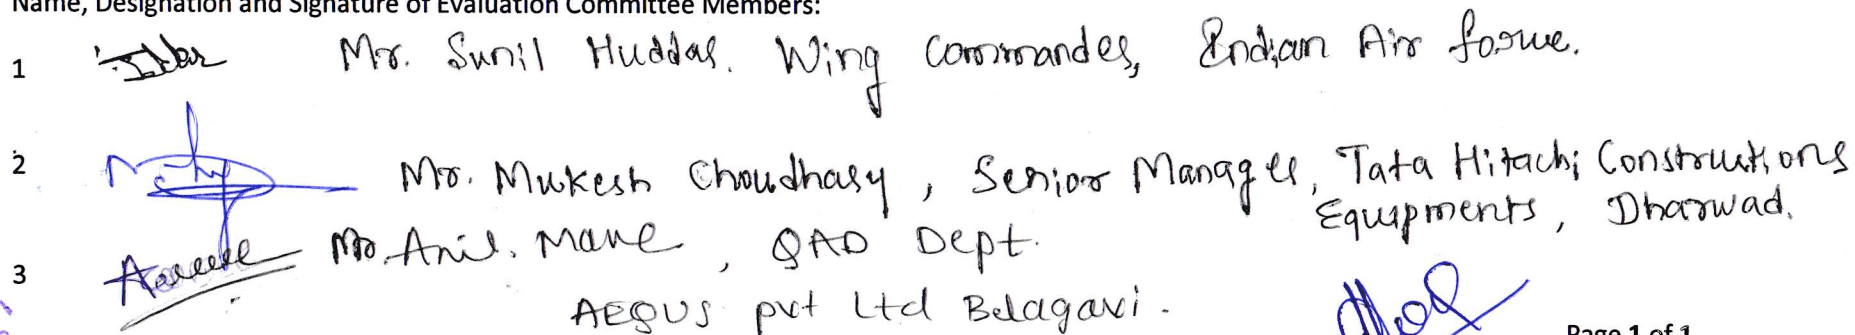 Name, Designation and Signature of Evaluation Committee Members:
1 Mr. Sunil Huddar. Wing Commander, Indian Air force.
2 Mr. Mukesh Choudhary, Senior Manager, Tata Hitachi Constructions
Equipments, Dharwad.
3 Mr. Anil. Mane, QAD Dept.
AEQUS pvt Ltd Belagavi.
Page 1 of 1